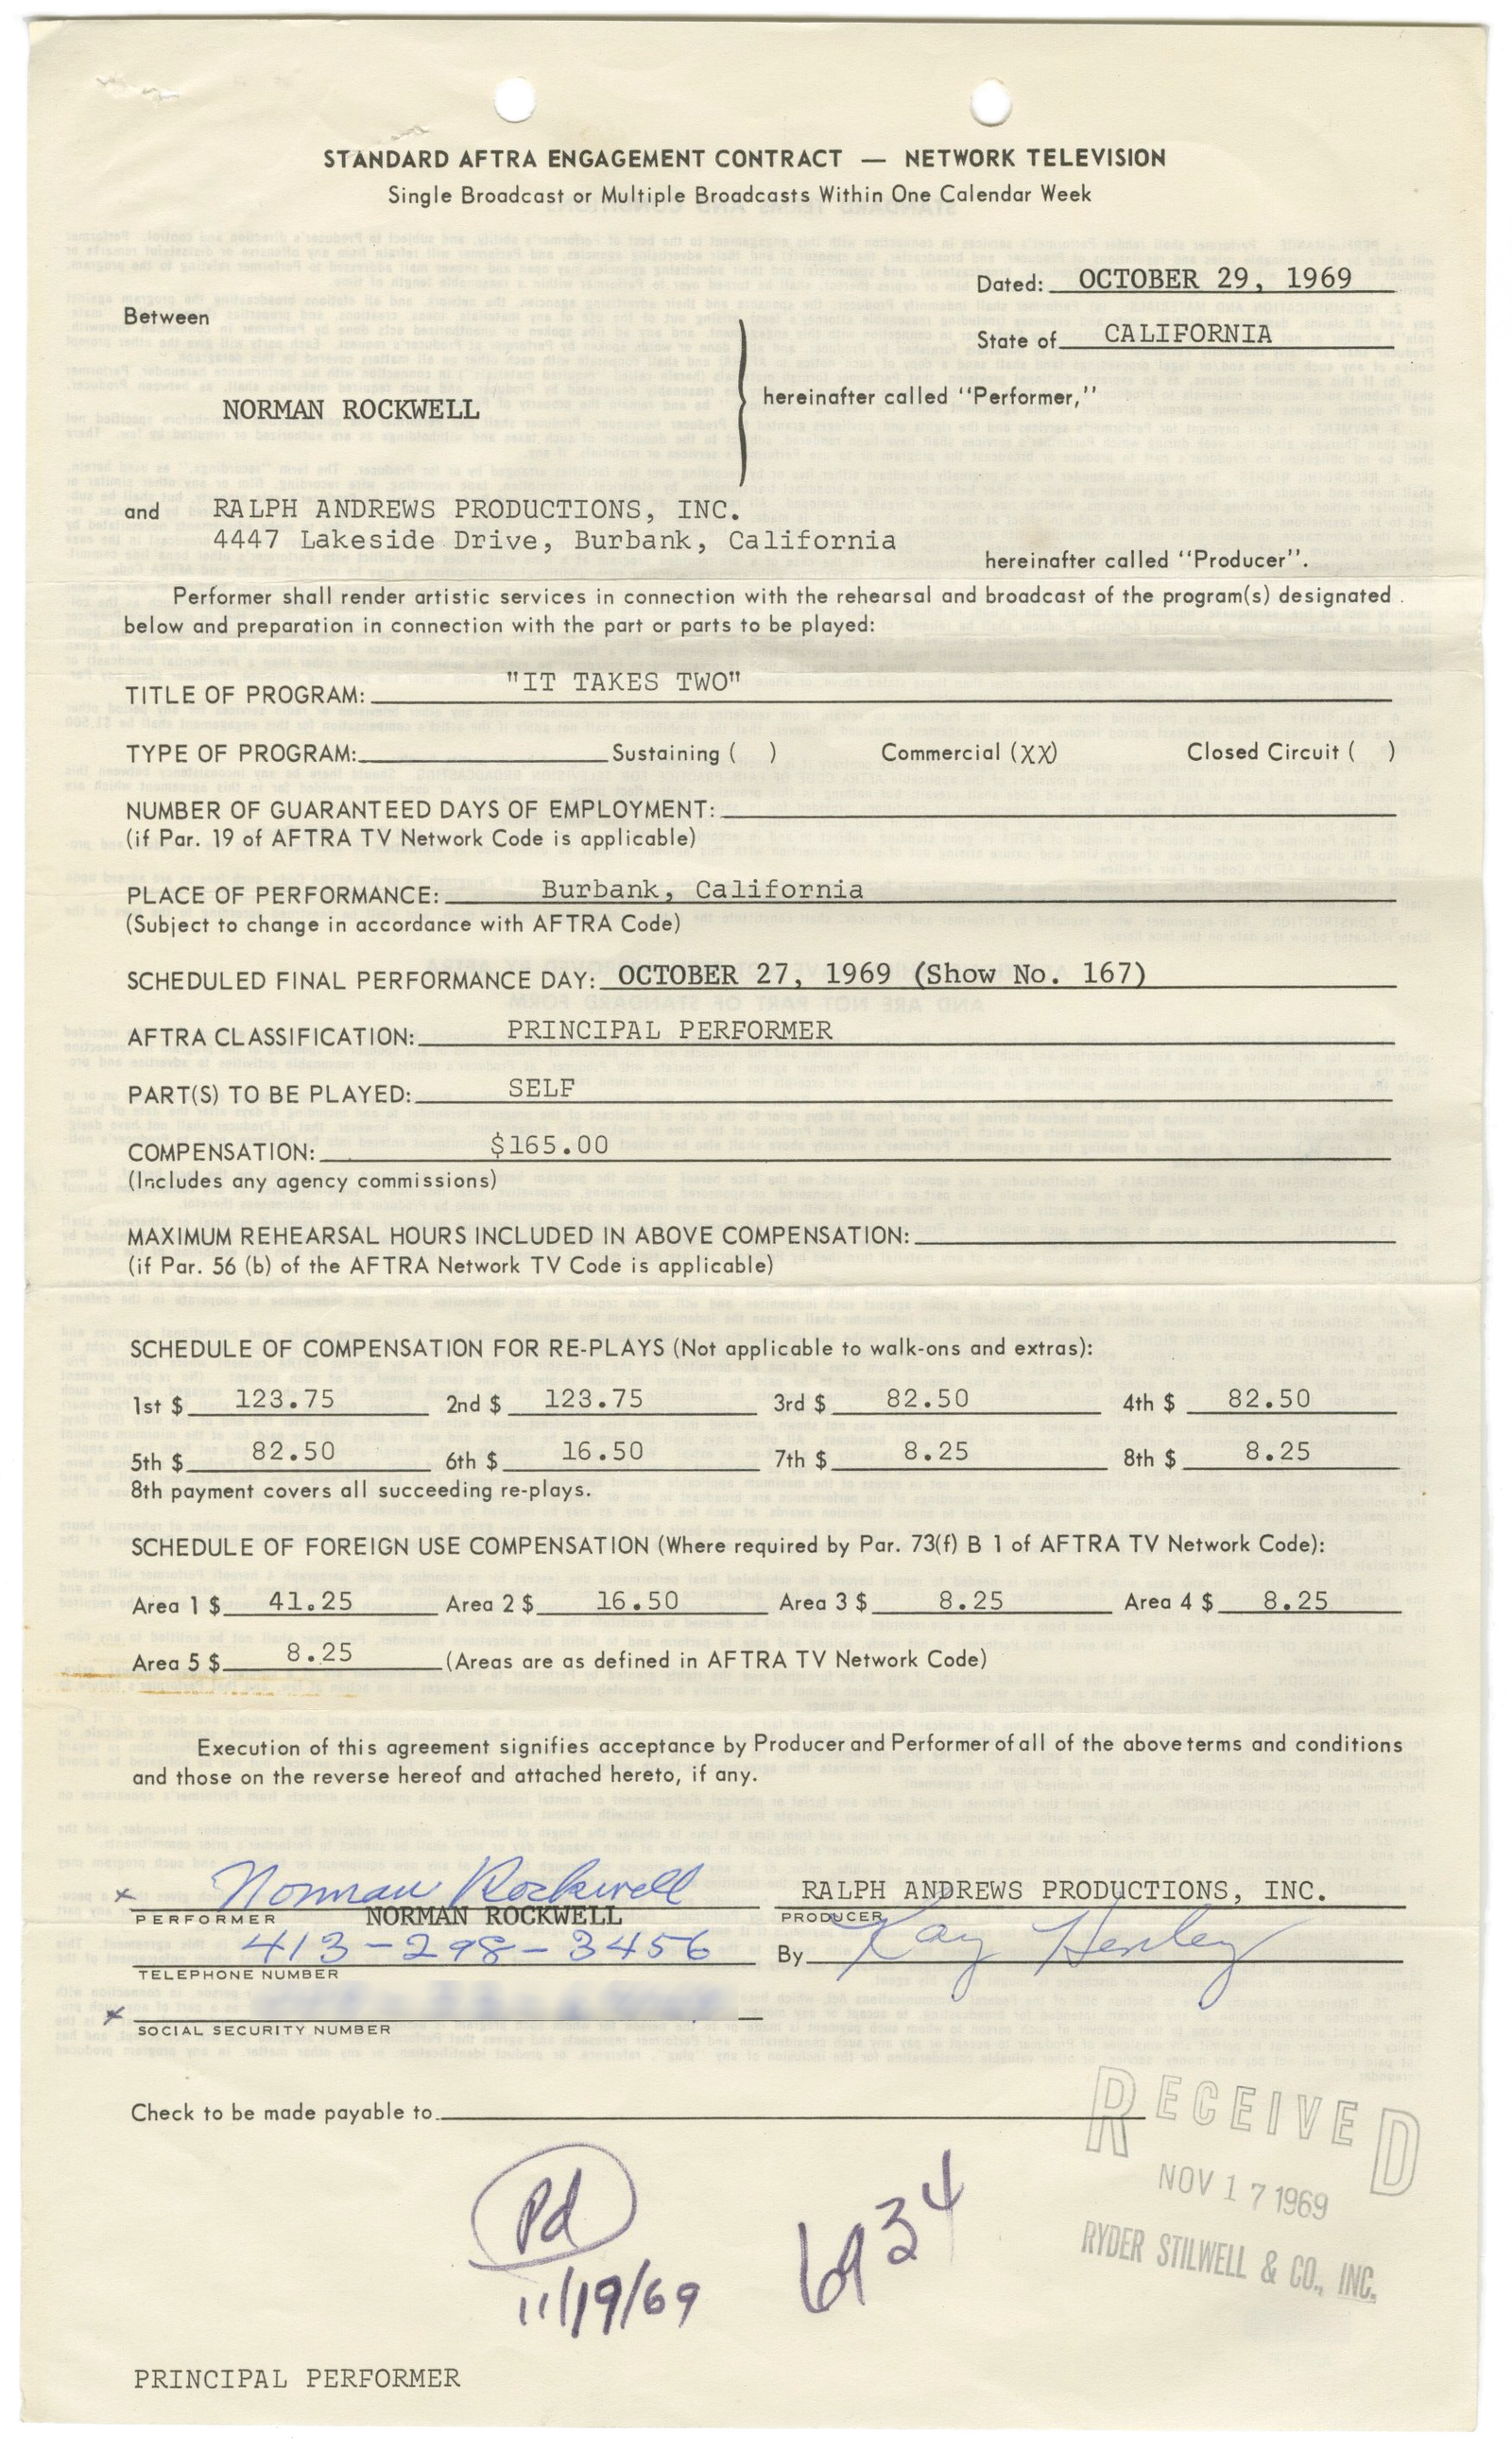 STANDARD AFTRA ENGAGEMENT CONTRACT — NETWORK TELEVISION
Single Broadcast or Multiple Broadcasts Within One Calendar Week
Dated: OCTOBER 29, 1969
Between
State of CALIFORNIA
NORMAN ROCKWELL
hereinafter called "Performer,"
and RALPH ANDREWS PRODUCTIONS, INC.
4447 Lakeside Drive, Burbank, California
hereinafter called "Producer".
Performer shall render artistic services in connection with the rehearsal and broadcast of the program(s) designated
below and preparation in connection with the part or parts to be played:
TITLE OF PROGRAM: "IT TAKES TWO"
TYPE OF PROGRAM: Sustaining ( ) Commercial (XX) Closed Circuit ( )
NUMBER OF GUARANTEED DAYS OF EMPLOYMENT:
(if Par. 19 of AFTRA TV Network Code is applicable)
PLACE OF PERFORMANCE: Burbank, California
(Subject to change in accordance with AFTRA Code)
SCHEDULED FINAL PERFORMANCE DAY: OCTOBER 27, 1969 (Show No. 167)
AFTRA CLASSIFICATION: PRINCIPAL PERFORMER
PART(S) TO BE PLAYED: SELF
COMPENSATION: $165.00
(Includes any agency commissions)
MAXIMUM REHEARSAL HOURS INCLUDED IN ABOVE COMPENSATION:
(if Par. 56 (b) of the AFTRA Network TV Code is applicable)
SCHEDULE OF COMPENSATION FOR RE-PLAYS (Not applicable to walk-ons and extras):
1st $ 123.75 2nd $ 123.75 3rd $ 82.50 4th $ 82.50
5th $ 82.50 6th $ 16.50 7th $ 8.25 8th $ 8.25
8th payment covers all succeeding re-plays.
SCHEDULE OF FOREIGN USE COMPENSATION (Where required by Par. 73(f) B 1 of AFTRA TV Network Code):
Area 1 $ 41.25 Area 2 $ 16.50 Area 3 $ 8.25 Area 4 $ 8.25
Area 5 $ 8.25 (Areas are as defined in AFTRA TV Network Code)
Execution of this agreement signifies acceptance by Producer and Performer of all of the above terms and conditions
and those on the reverse hereof and attached hereto, if any.
x Norman Rockwell RALPH ANDREWS PRODUCTIONS, INC.
PERFORMER NORMAN ROCKWELL PRODUCER
413-298-3456 By Kay Henley
TELEPHONE NUMBER
x
SOCIAL SECURITY NUMBER
Check to be made payable to
RECEIVED
NOV 17 1969
RYDER STILWELL & CO., INC.
Pd
11/19/69
6934
PRINCIPAL PERFORMER